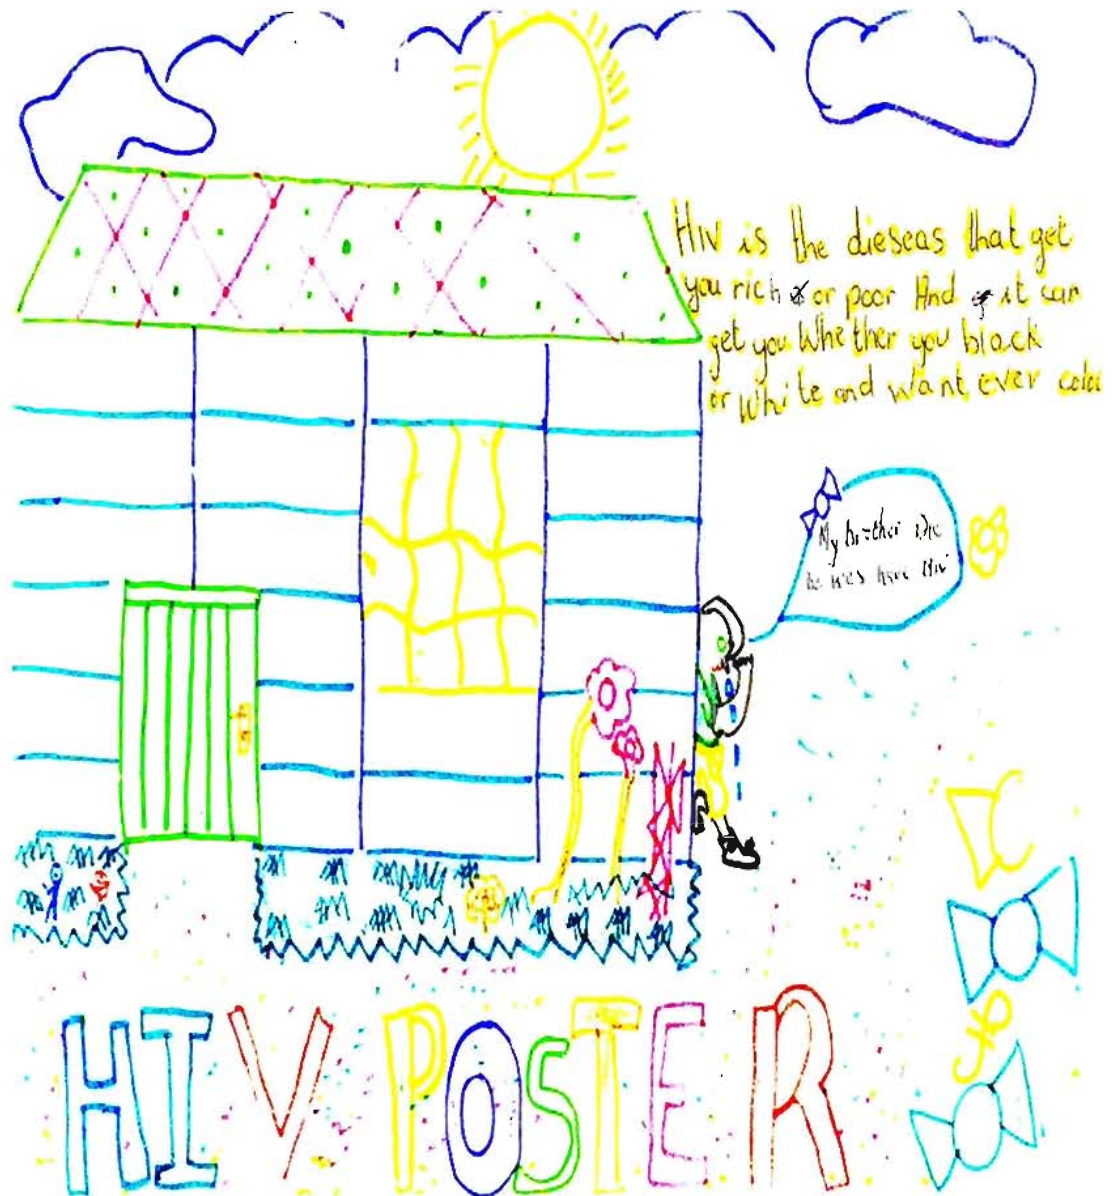 HIV is the dieseas that get
you rich or poor And it can
get you Whether you black
or White and want ever color
My brother
he was have HIV
HIV POSTER